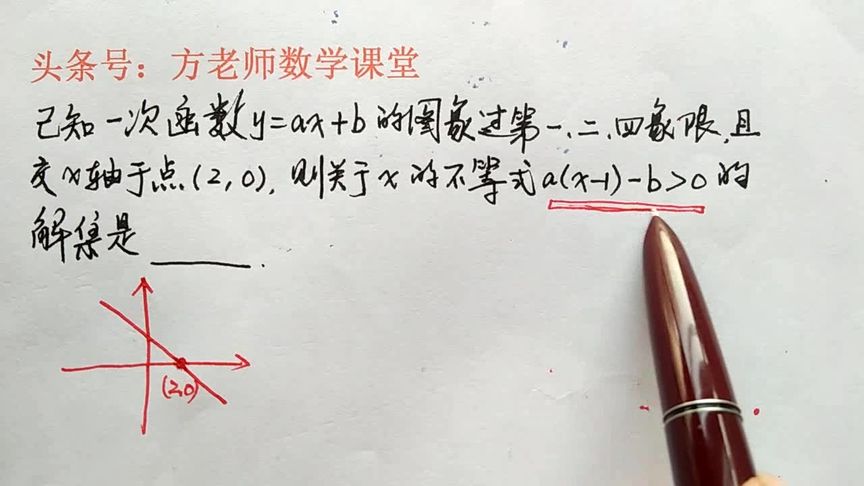 头条号：方老师数学课堂
已知一次函数y=ax+b的图象过第一、二、四象限,且
交x轴于点(2,0),则关于x的不等式a(x-1)-b>0的
解集是______.
(2,0)